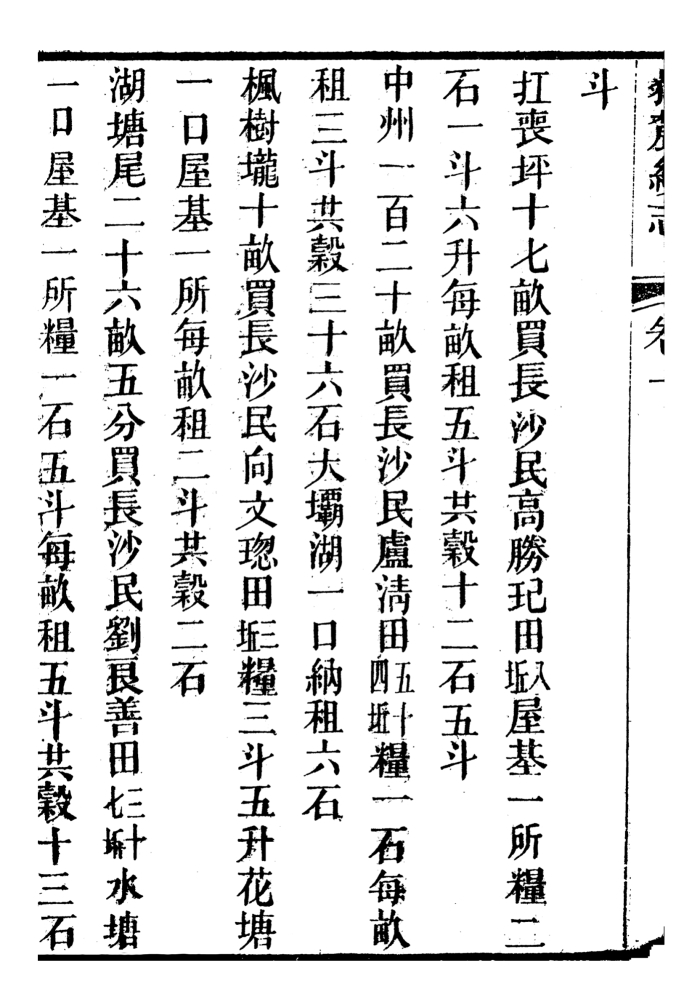 嶽麓續志 卷一
斗
扛喪坪十七畝買長沙民高勝玘田八坵屋基一所糧二
石一斗六升每畝租五斗共穀十二石五斗
中州一百二十畝買長沙民盧清田五十四坵糧一石每畝
租三斗共穀三十六石大壩湖一口納租六石
楓樹壠十畝買長沙民向文璁田三坵糧三斗五升花塘
一口屋基一所每畝租二斗共穀二石
湖塘尾二十六畝五分買長沙民劉良善田三十七坵水塘
一口屋基一所糧一石五斗每畝租五斗共穀十三石